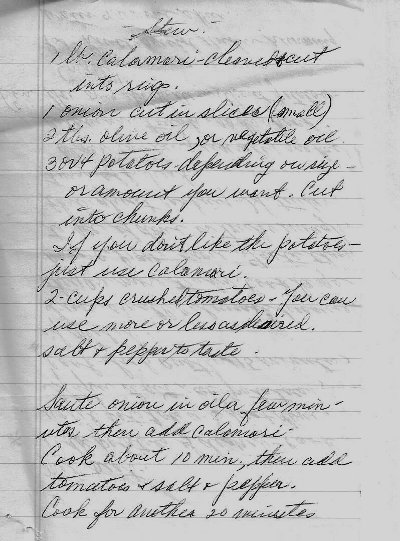 Stew.
1 lb. Calamari - cleaned & cut
into rings.
1 onion cut in slices (small)
2 tbs. olive oil, or vegetable oil.
3 or 4 potatoes depending on size -
or amount you want. Cut
into chunks.
If you don't like the potatoes -
just use Calamari.
2 - cups crushed tomatoes - You can
use more or less as desired.
salt & pepper to taste.
Saute onion in oil a few min-
utes then add calamari
Cook about 10 min, then add
tomatoes & salt & pepper.
Cook for another 20 minutes